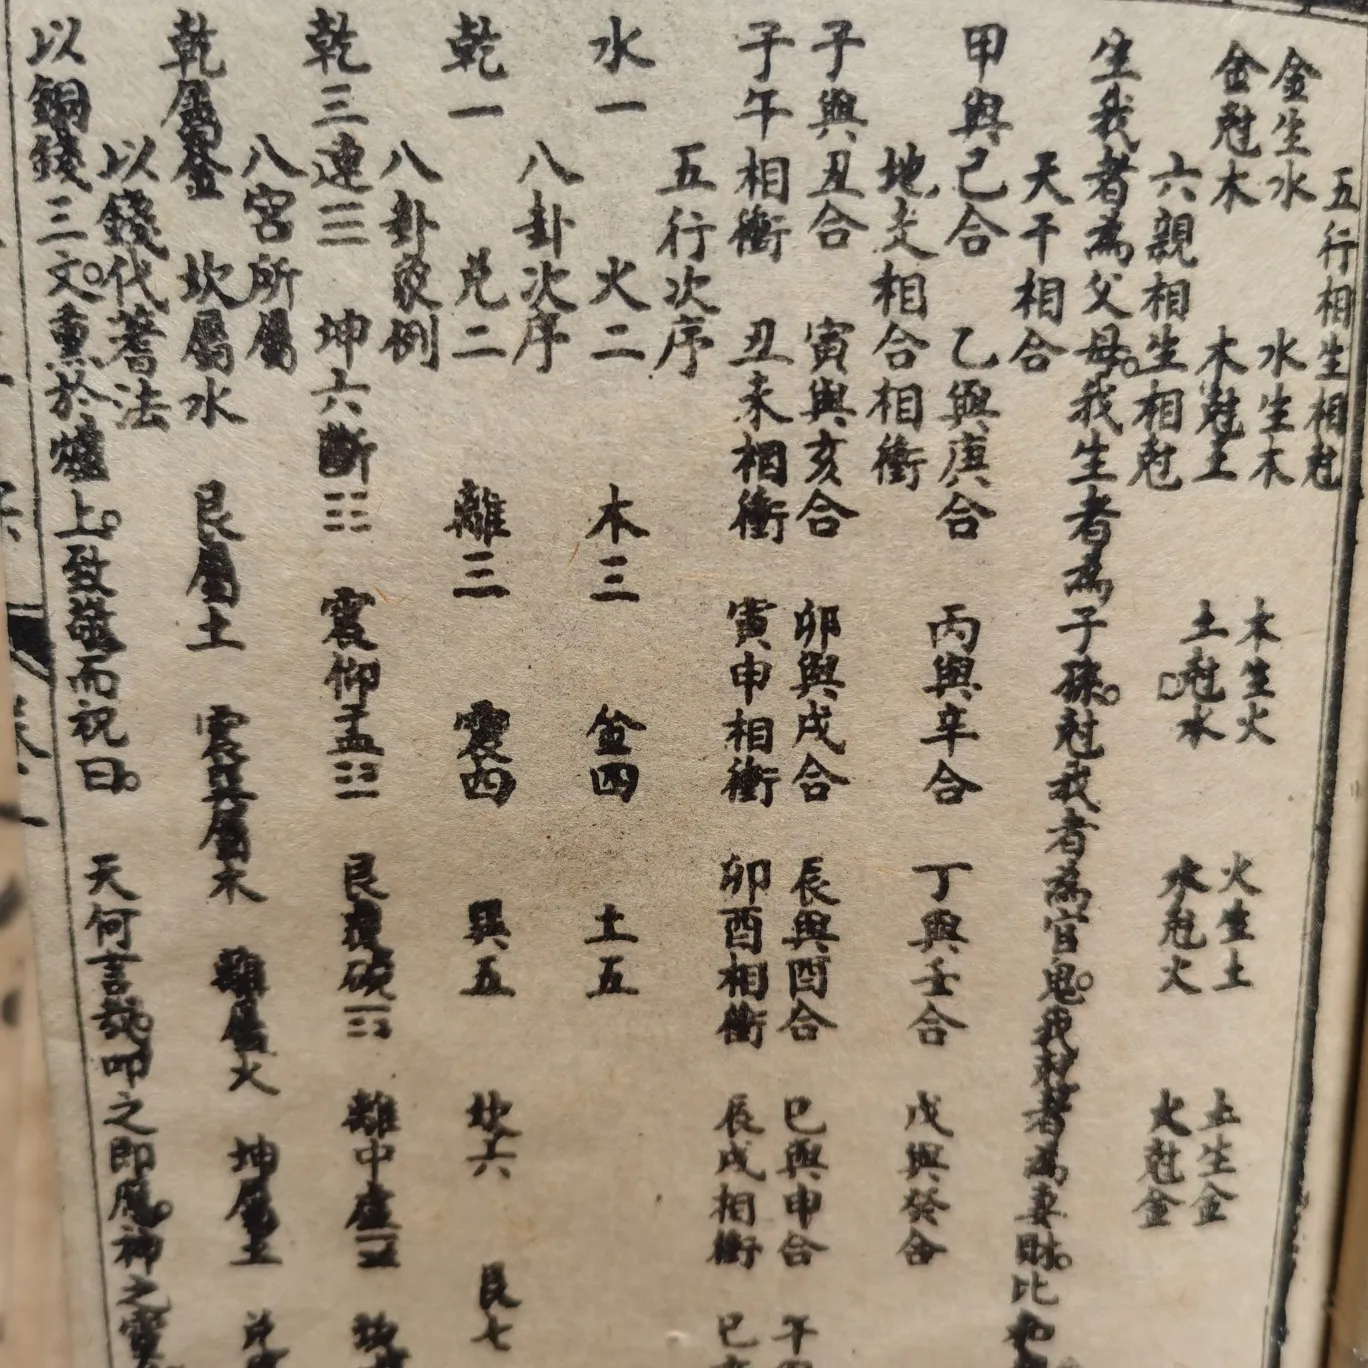 五行相生相尅
金生水 水生木 木生火 火生土 土生金
金尅木 木尅土 土尅水 水尅火 火尅金
六親相生相尅
生我者為父母。我生者為子孫。尅我者為官鬼。我尅者為妻財。比和
天干相合
甲與己合 乙與庚合 丙與辛合 丁與壬合 戊與癸合
地支相合相衝
子與丑合 寅與亥合 卯與戌合 辰與酉合 巳與申合 午
子午相衝 丑未相衝 寅申相衝 卯酉相衝 辰戌相衝 巳
五行次序
水一 火二 木三 金四 土五
八卦次序
乾一 兑二 離三 震四 巽五 坎六 艮七
八卦象例
乾三連☰ 坤六斷☷ 震仰盂☳ 艮覆碗☶ 離中虛☲
八宮所屬
乾屬金 坎屬水 艮屬土 震巽屬木 離屬火 坤屬土 兑
以錢代蓍法
以銅錢三文。熏於爐上。致敬而祝曰。 天何言哉。叩之即應。神之靈